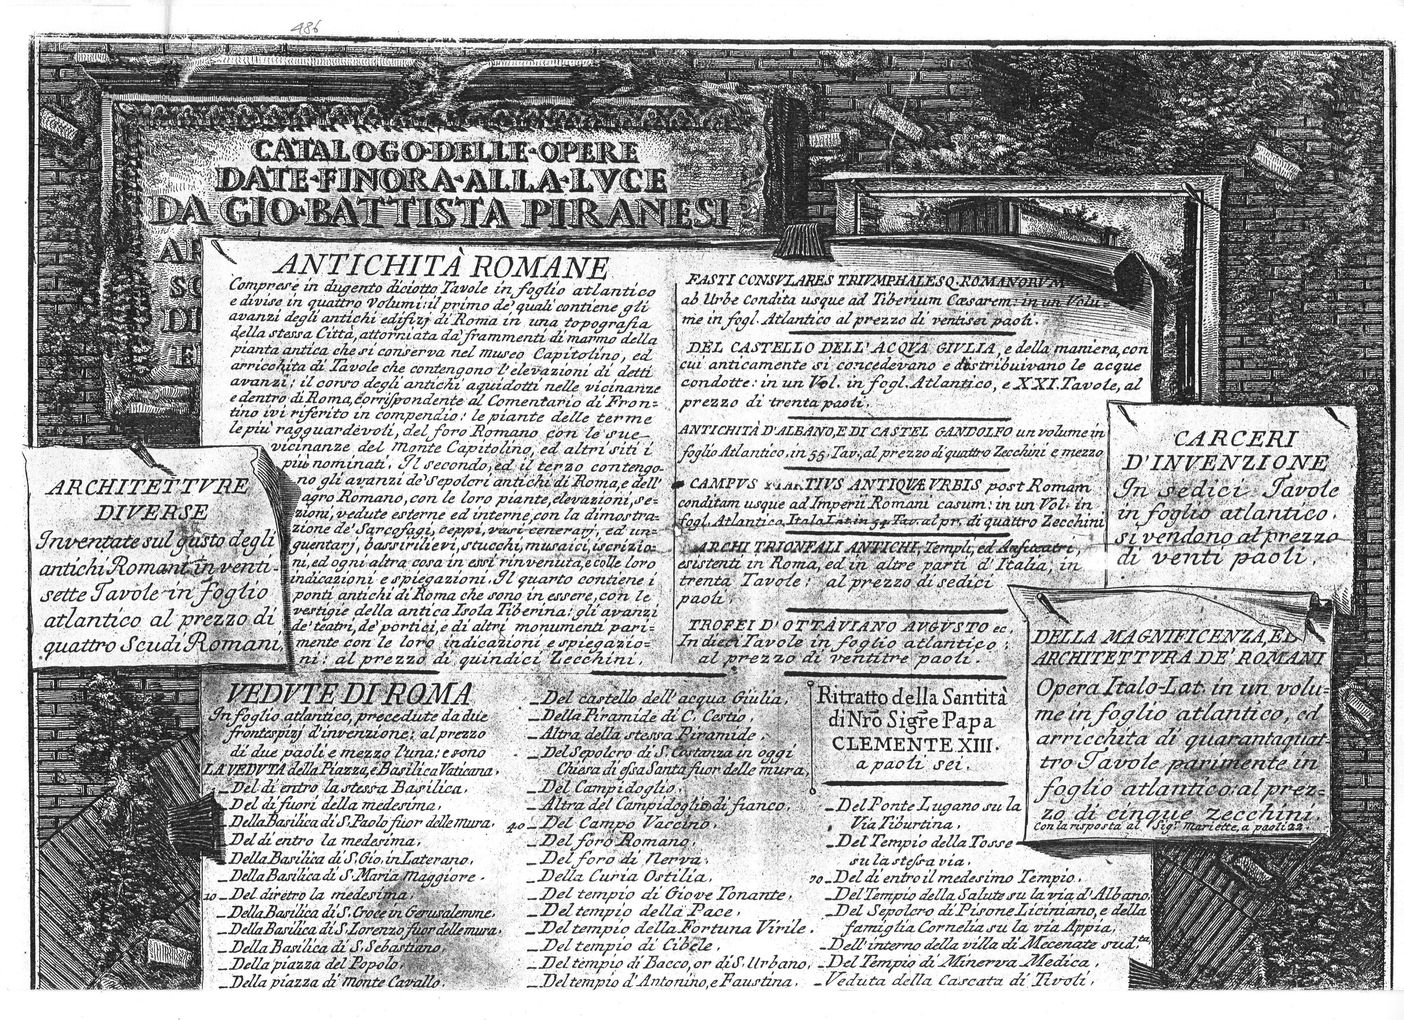 486
CATALOGO·DELLE·OPERE
DATE·FINORA·ALLA·LVCE
DA GIO·BATTISTA PIRANESI
ANTICHITÀ ROMANE
Comprese in dugento diciotto Tavole in foglio atlantico
e divise in quattro Volumi: il primo de' quali contiene gli
avanzi degli antichi edifizj di Roma in una topografia
della stessa Città, attorniata da' frammenti di marmo della
pianta antica che si conserva nel museo Capitolino, ed
arricchita di Tavole che contengono l'elevazioni di detti
avanzi; il corso degli antichi aquidotti nelle vicinanze
e dentro di Roma, corrispondente al Comentario di Fron=
tino ivi riferito in compendio: le piante delle terme
le più ragguardevoli, del foro Romano con le sue
vicinanze del Monte Capitolino, ed altri siti i
più nominati. Il secondo, ed il terzo contengo-
no gli avanzi de' Sepolcri antichi di Roma, e dell'
agro Romano, con le loro piante, elevazioni, se-
zioni, vedute esterne ed interne, con la dimostra-
zione de' Sarcofagi, ceppi, vasi cenerarj, ed un-
guentarj, bassirilievi, stucchi, musaici, iscrizio-
ni, ed ogni altra cosa in essi rinvenuta, e colle loro
indicazioni e spiegazioni. Il quarto contiene i
ponti antichi di Roma che sono in essere, con le
vestigie della antica Isola Tiberina: gli avanzi
de' teatri, de' portici, e di altri monumenti pari-
mente con le loro indicazioni e spiegazio-
ni: al prezzo di quindici Zecchini.
FASTI CONSVLARES TRIVMPHALESQ. ROMANORVM
ab Urbe Condita usque ad Tiberium Cæsarem: in un Volu=
me in fogl. Atlantico al prezzo di ventisei paoli.
DEL CASTELLO DELL' ACQVA GIVLIA, e della maniera, con
cui anticamente si concedevano e distribuivano le acque
condotte: in un Vol. in fogl. Atlantico, e XXI. Tavole, al
prezzo di trenta paoli.
ANTICHITÀ D'ALBANO, E DI CASTEL GANDOLFO un volume in
foglio Atlantico, in 55. Tav., al prezzo di quattro Zecchini e mezzo
CAMPVS MARTIVS ANTIQVÆ VRBIS post Romam
conditam usque ad Imperii Romani casum: in un Vol. in
fogl. Atlantico, Italo Lat. in 54 Tav. al pr. di quattro Zecchini
ARCHI TRIONFALI ANTICHI, Templi, ed Anfiteatri,
esistenti in Roma, ed in altre parti d'Italia, in
trenta Tavole: al prezzo di sedici
paoli.
TROFEI D' OTTAVIANO AVGVSTO ec.
In dieci Tavole in foglio atlantico:
al prezzo di ventitre paoli.
ARCHITETTVRE
DIVERSE
Inventate sul gusto degli
antichi Romani, in venti-
sette Tavole in foglio
atlantico al prezzo di
quattro Scudi Romani.
CARCERI
D'INVENZIONE
In sedici Tavole
in foglio atlantico.
si vendono al prezzo
di venti paoli.
DELLA MAGNIFICENZA, ED
ARCHITETTVRA DE' ROMANI
Opera Italo-Lat. in un volu=
me in foglio atlantico, ed
arricchita di quarantaquat-
tro Tavole parimente in
foglio atlantico: al prez-
zo di cinque Zecchini.
Con la risposta al Sigr. Mariette, a paoli 22.
VEDUTE DI ROMA
In foglio atlantico, precedute da due
frontespizj d'invenzione; al prezzo
di due paoli e mezzo l'una; e sono
LA VEDUTA della Piazza, e Basilica Vaticana,
_Del di entro la stessa Basilica,
_Del di fuori della medesima,
_Della Basilica di S. Paolo fuor delle mura,
_Del di entro la medesima.
_Della Basilica di S. Gio. in Laterano,
_Della Basilica di S. Maria Maggiore,
10_Del diretro la medesima,
_Della Basilica di S. Croce in Gerusalemme,
_Della Basilica di S. Lorenzo fuor delle mura,
_Della Basilica di S. Sebastiano,
_Della piazza del Popolo,
_Della piazza di Monte Cavallo,
_Del castello dell' acqua Giulia,
_Della Piramide di C. Cestio,
_Altra della stessa Piramide,
_Del Sepolcro di S. Costanza in oggi
Chiesa di essa Santa fuor delle mura,
_Del Campidoglio,
_Altra del Campidoglio di fianco,
40_Del Campo Vaccino,
_Del foro Romano,
_Del foro di Nerva,
_Della Curia Ostilia,
_Del tempio di Giove Tonante,
_Del tempio della Pace,
_Del tempio della Fortuna Virile,
_Del tempio di Cibele,
_Del tempio di Bacco, or di S. Urbano,
_Del tempio d'Antonino, e Faustina,
Ritratto della Santità
di Nrõ Sigre Papa
CLEMENTE XIII.
a paoli sei.
_Del Ponte Lugano su la
Via Tiburtina,
_Del Tempio della Tosse
su la stessa via,
70_Del di entro il medesimo Tempio,
_Del Tempio della Salute su la via d'Albano,
_Del Sepolcro di Pisone Liciniano, e della
famiglia Cornelia su la via Appia,
_Dell' interno della villa di Mecenate sud.ta
_Del Tempio di Minerva Medica,
_Veduta della Cascata di Tivoli,